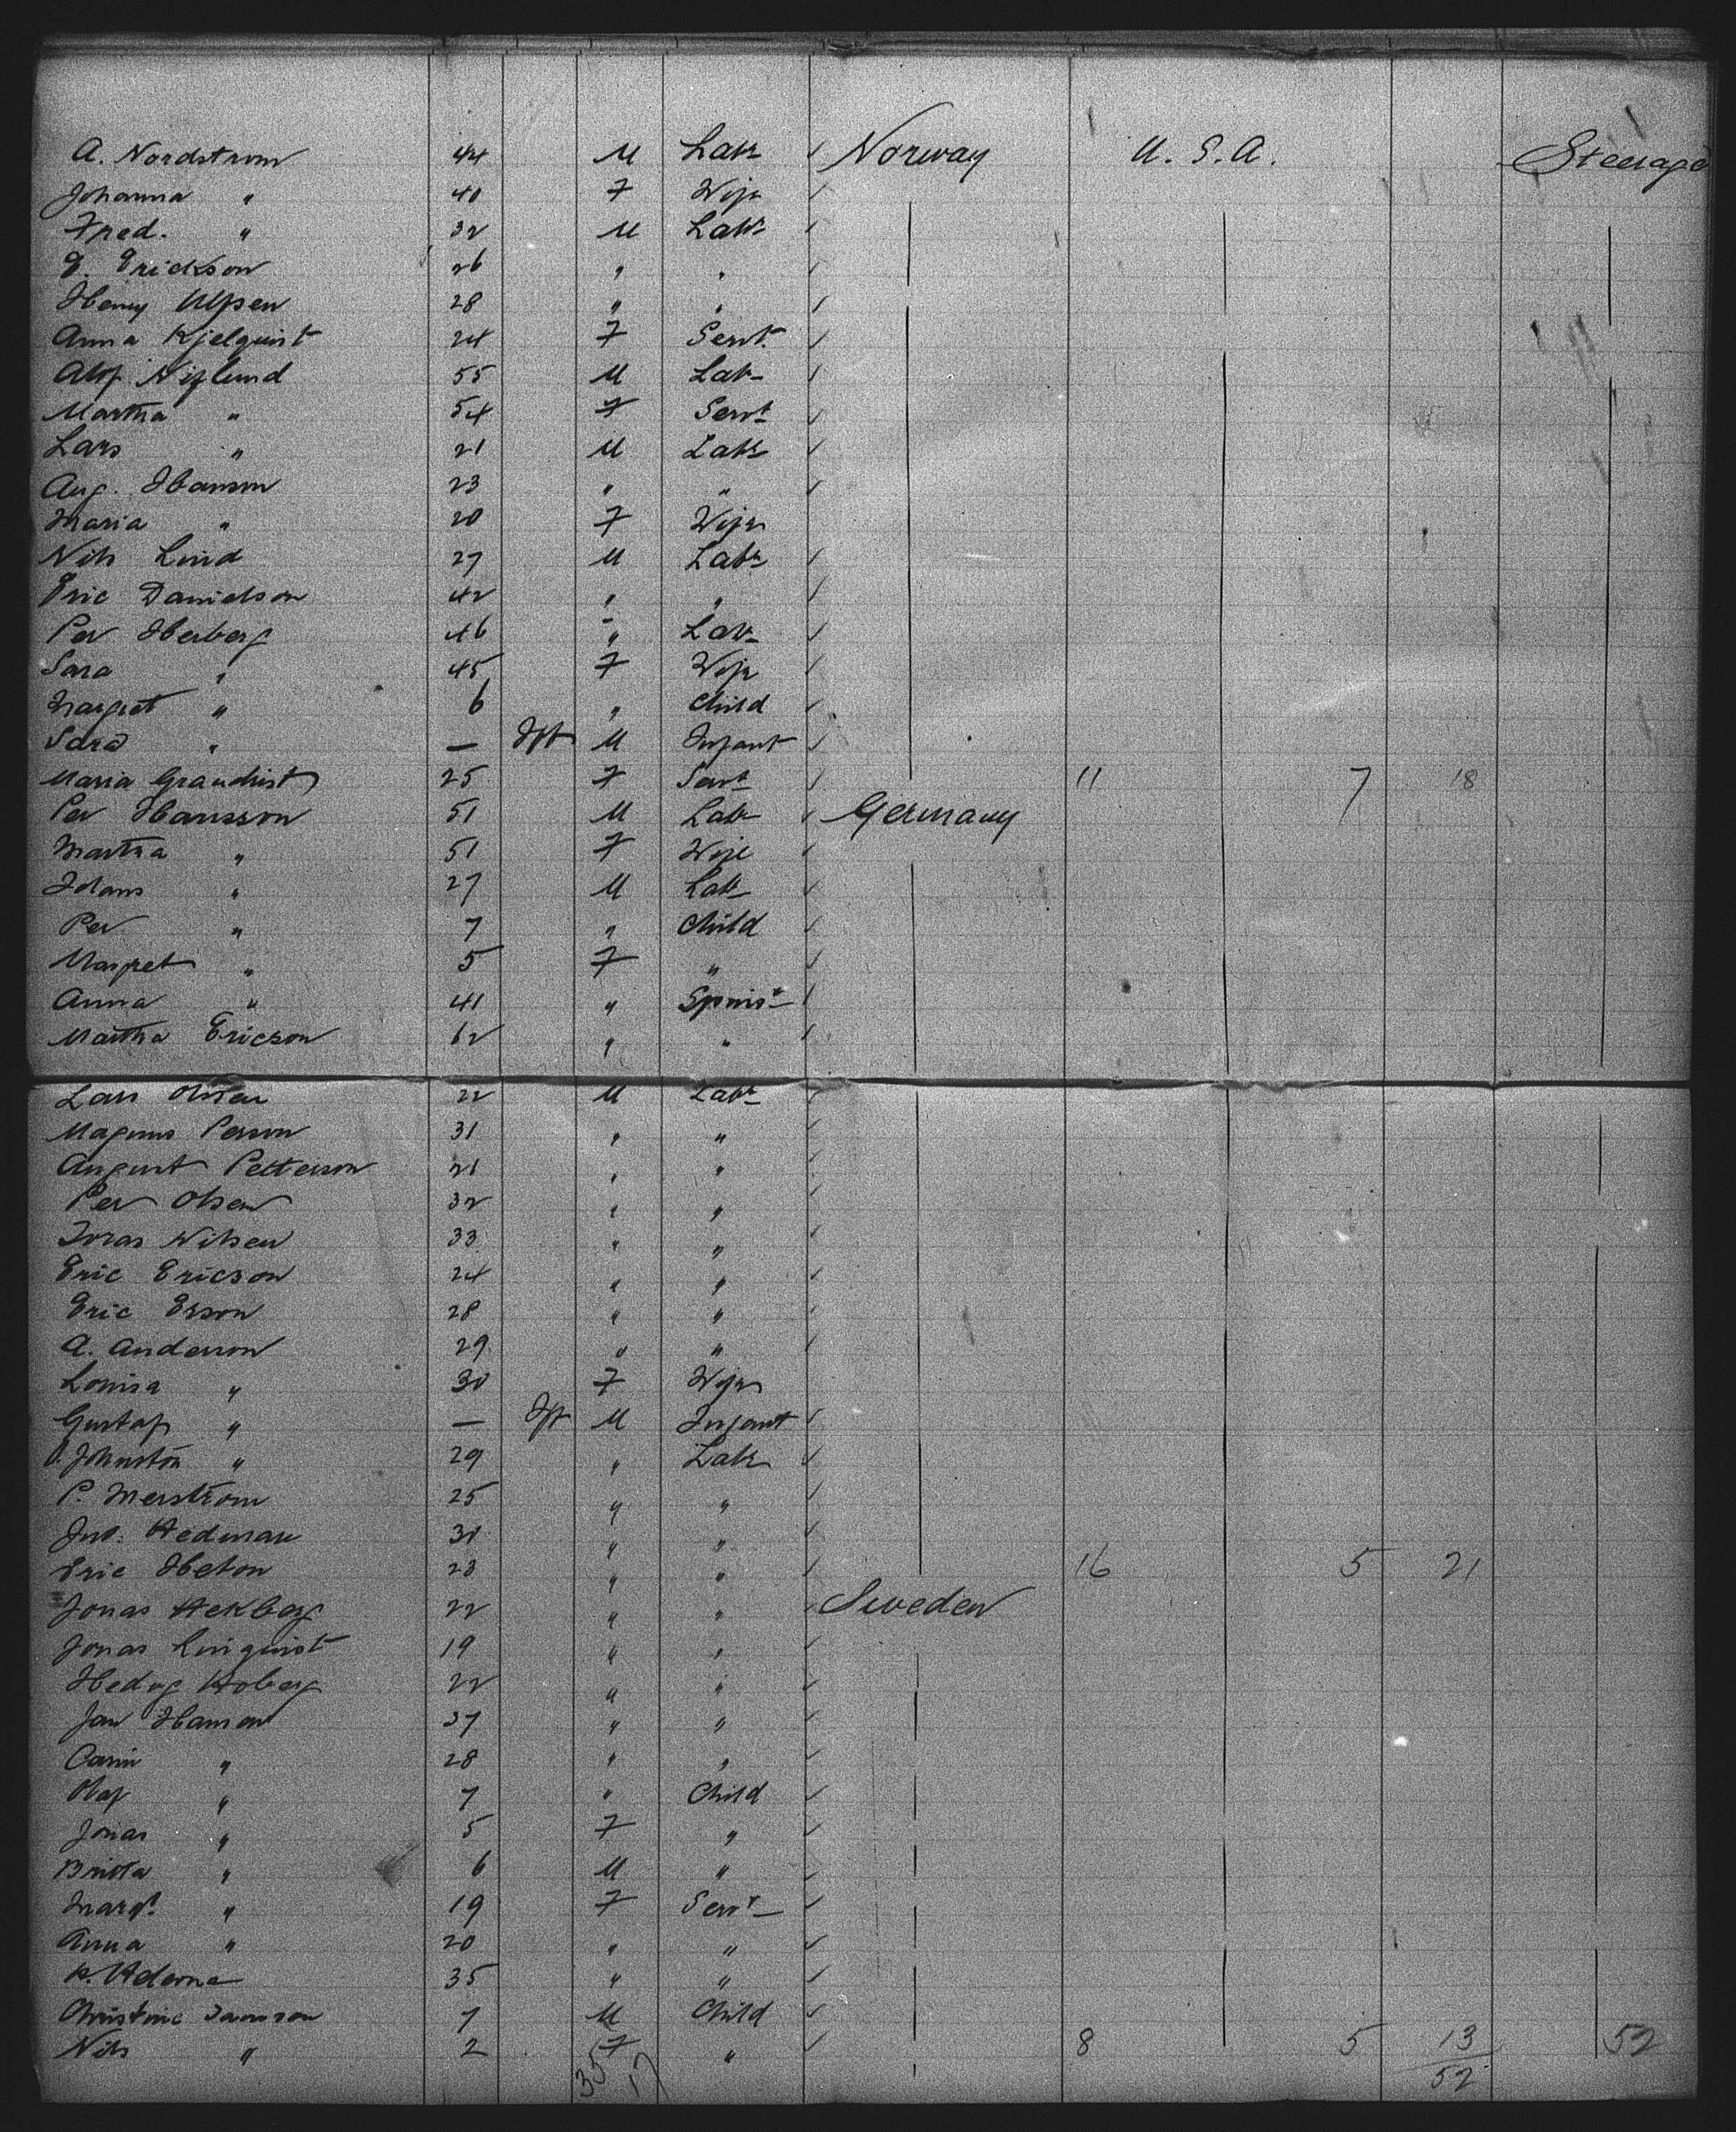 A. Nordstrom 44 M Labr Norway U.S.A. Steerage
Johanna " 40 F Wife
Fred. " 32 M Labr
E. Erickson 26 " "
Henry 28 " "
Anna Kjelquist 24 F Servt.
Nylund 55 M Labr
Martha " 54 F Servt
Lars " 21 M Labr
Aug. Hanson 23 " "
Maria " 20 F Wife
Nils Lind 27 M Labr
Eric Danielson 42 " "
Per Herberg 46 " Labr
Sara " 45 F Wife
Margret " 6 " Child
Sara " — Inft M Infant
Maria 25 F Servt 11 7 18
Per Hansson 51 M Labr Germany
Martha " 51 F Wife
" 27 M Labr
Per " 7 " Child
Margret " 5 F "
Anna " 41 " Spinst
Martha Ericson 62 " "
Lars Olsen 22 M Labr
Magnus Person 31 " "
August Petterson 21 " "
Per Olsen 32 " "
Nilsen 33 " "
Eric Ericson 24 " "
Eric Erson 28 " "
A. Anderson 29 " "
Louisa " 30 F Wife
Gustaf " — Inft M Infant
Johnston " 29 " Labr
P. Merstrom 25 " "
Jno. Hedman 30 " "
Eric 23 " " 16 5 21
Jonas Hekberg 22 " " Sweden
Jonas Linquist 19 " "
22 " "
Jan Hanson 37 " "
Carin " 28 " "
Olaf " 7 " Child
Jonas " 5 F "
Britta " 6 M "
Margt. " 19 F Servt
Anna " 20 " "
35 " "
Christine 7 M Child
Nils " 2 F " 8 5 13 52
35 17 52